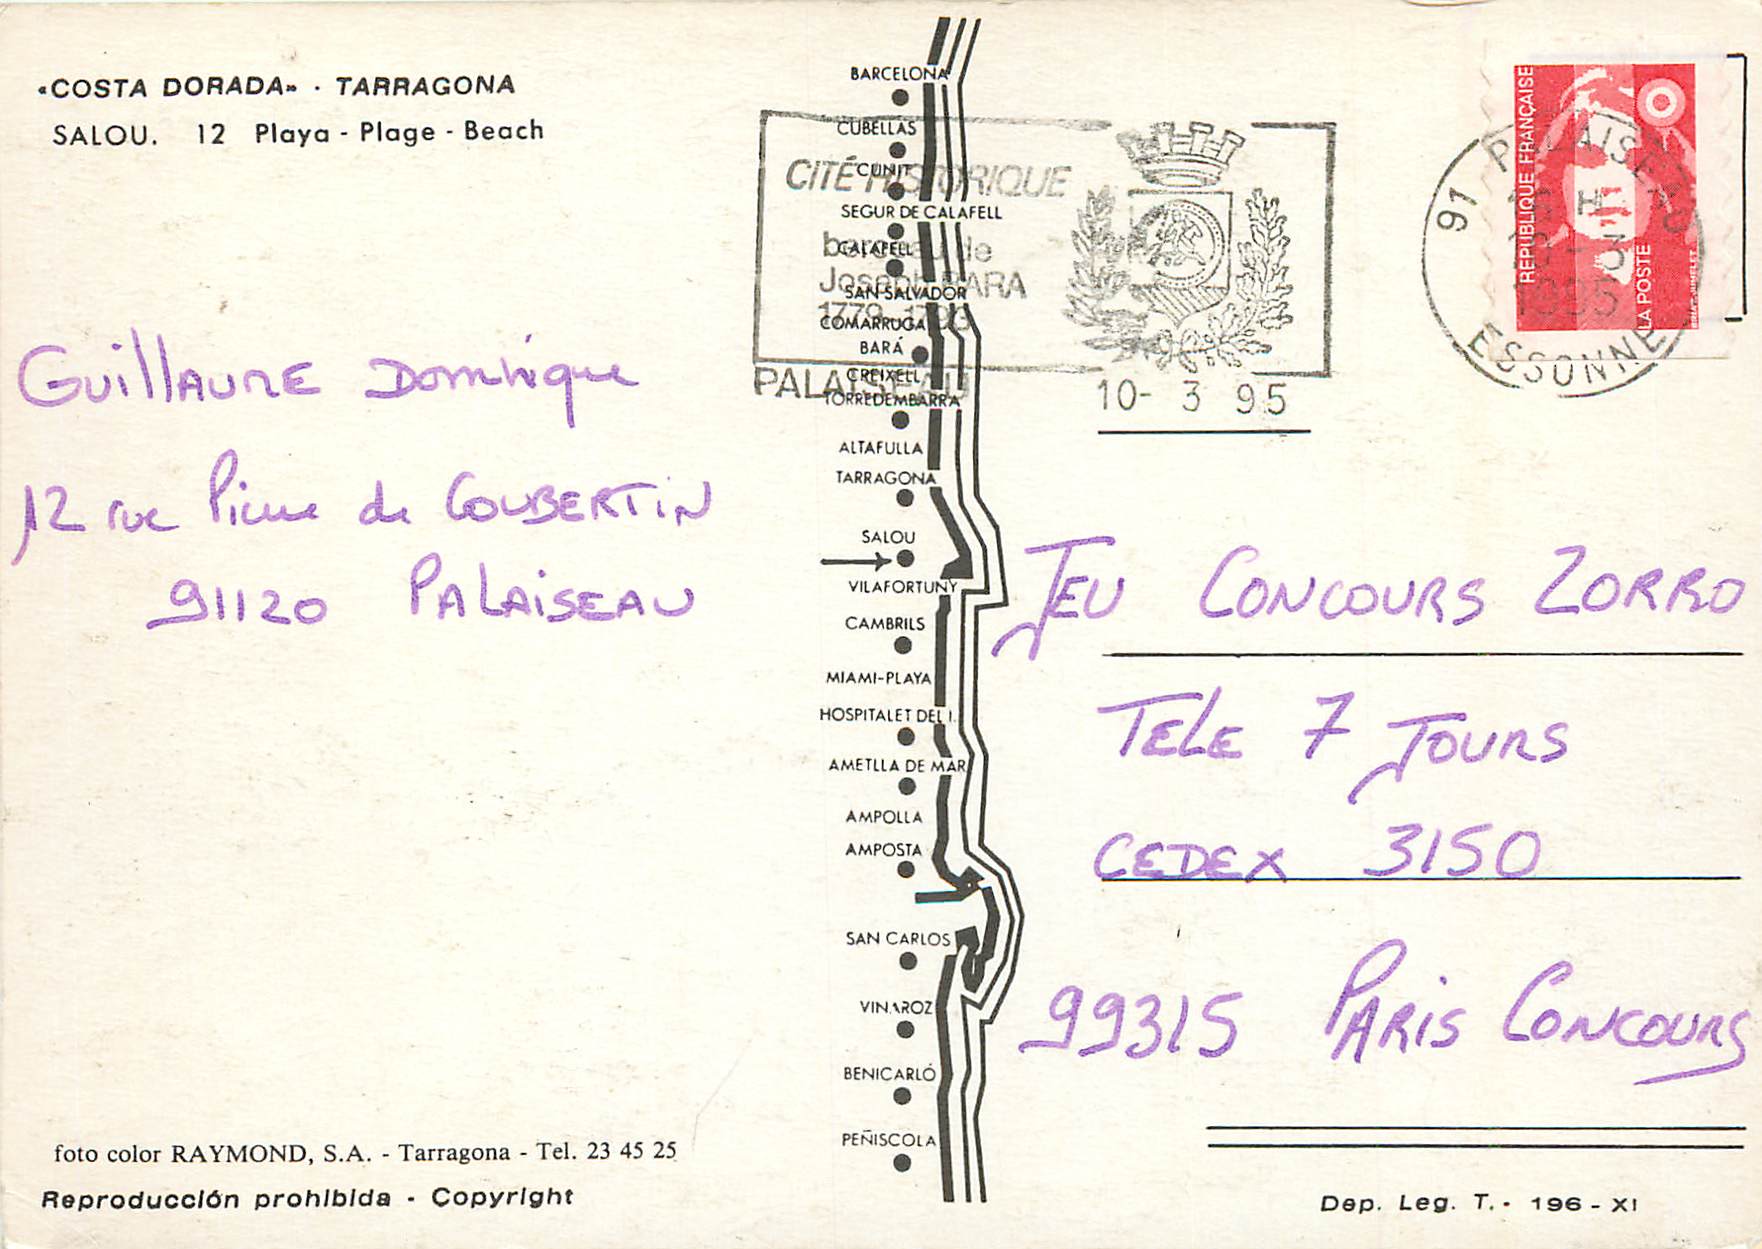 «COSTA DORADA» · TARRAGONA
SALOU. 12 Playa - Plage - Beach
Guillaume Dominique
12 rue Pierre de COUBERTIN
91120 PALAISEAU
foto color RAYMOND, S.A. - Tarragona - Tel. 23 45 25
Reproducción prohibida - Copyright
BARCELONA
CUBELLAS
CUNIT
SEGUR DE CALAFELL
CALAFELL
SAN SALVADOR
COMARRUGA
BARÁ
CREIXELL
TORREDEMBARRA
ALTAFULLA
TARRAGONA
SALOU
VILAFORTUNY
CAMBRILS
MIAMI-PLAYA
HOSPITALET DEL I.
AMETLLA DE MAR
AMPOLLA
AMPOSTA
SAN CARLOS
VINAROZ
BENICARLÓ
PEÑISCOLA
CITÉ HISTORIQUE
berceau de
Joseph BARA
1779-1793
PALAISEAU
10- 3 95
REPUBLIQUE FRANÇAISE
LA POSTE
91 PALAISEAU
1995
ESSONNE
JEU CONCOURS ZORRO
TELE 7 JOURS
CEDEX 3150
99315 PARIS CONCOURS
Dep. Leg. T. - 196 - XI